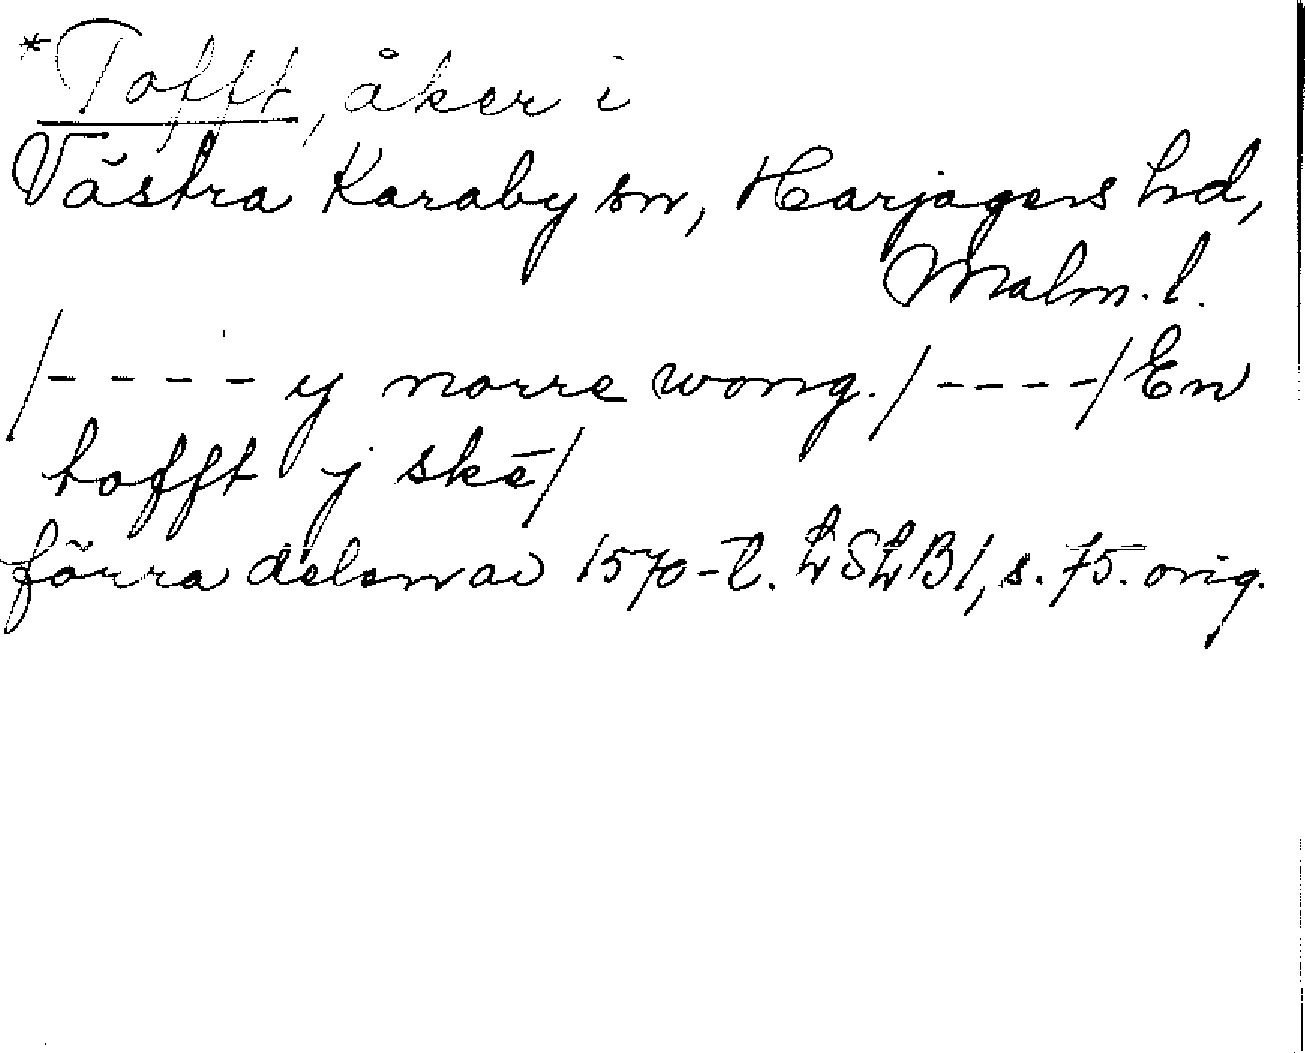 *Tofft, åker i
Västra Karaby sn, Harjagers hd,
Malm. l.
/- - - - y norre wong./- - - -/En
tofft j skē/
förra delen av 1570-t. LSLB1, s. 75. orig.